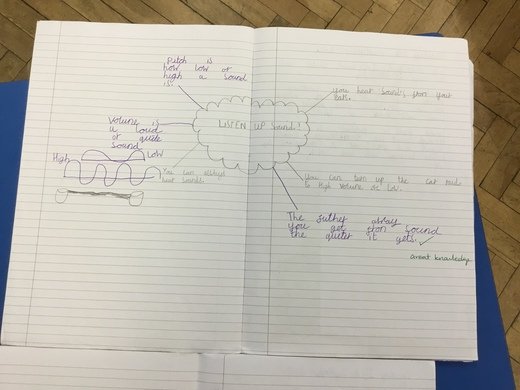 pitch is
how low or
high a sound
is.
volume is
a loud
or quiet
sound
High
Low
LISTEN UP Sound!
you hear sounds from your
ears.
You can always
hear sounds.
You can turn up the car radio
to High volume or low.
The futher away
you get from sound
the quieter it gets.
Great knowledge